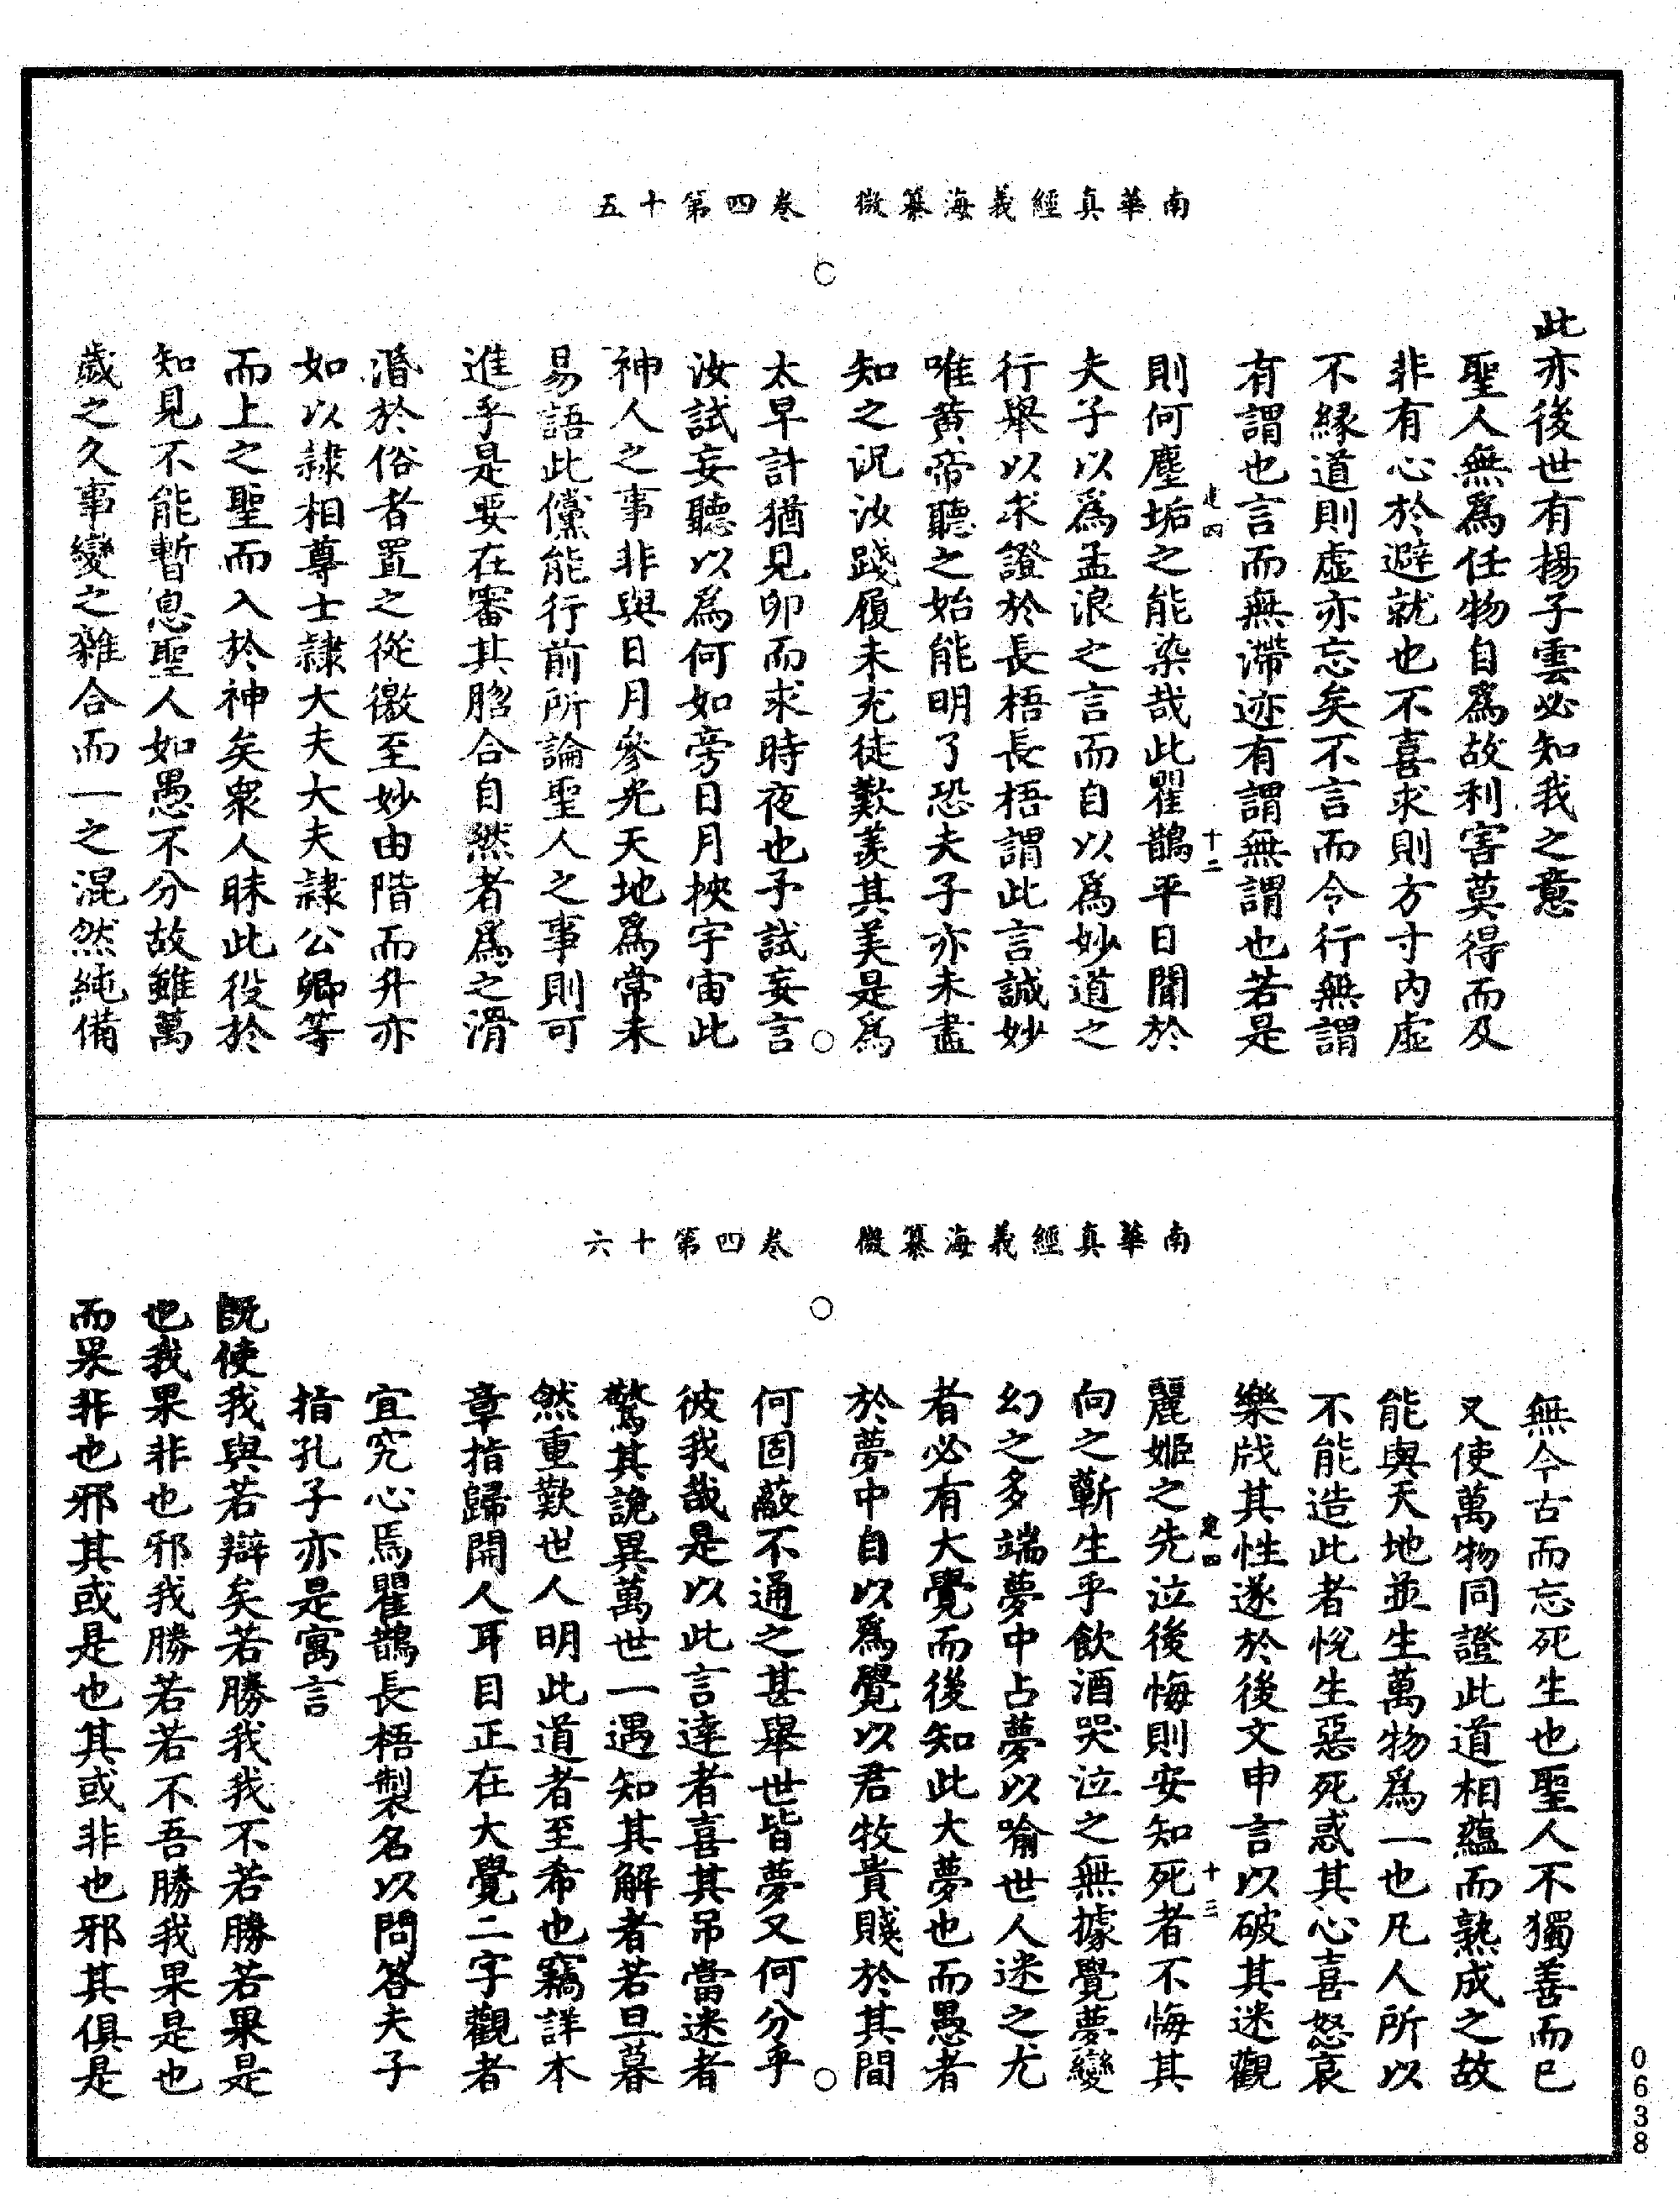 南華真經義海纂微　卷四第十五
此亦後世有揚子雲必知我之意
聖人無為任物自為故利害莫得而及
非有心於避就也不喜求則方寸內虛
不緣道則虛亦忘矣不言而令行無謂
有謂也言而無滯迹有謂無謂也若是
建四　十二
則何塵垢之能染哉此瞿鵲平日聞於
夫子以為孟浪之言而自以為妙道之
行舉以求證於長梧長梧謂此言誠妙
唯黃帝聽之始能明了恐夫子亦未盡
知之況汝踐履未充徒歎羨其美是為
太早計猶見卵而求時夜也予試妄言
汝試妄聽以為何如旁日月挾宇宙此
神人之事非與日月參光天地為常未
易語此儻能行前所論聖人之事則可
進乎是要在審其脗合自然者為之滑
涽於俗者置之從微至妙由階而升亦
如以隸相尊士隸大夫大夫隸公卿等
而上之聖而入於神矣眾人昧此役於
知見不能暫息聖人如愚不分故雖萬
歲之久事變之雜合而一之混然純備
南華真經義海纂微　卷四第十六
無今古而忘死生也聖人不獨善而已
又使萬物同證此道相蘊而熟成之故
能與天地並生萬物為一也凡人所以
不能造此者悅生惡死惑其心喜怒哀
樂戕其性遂於後文申言以破其迷觀
建四　十三
麗姬之先泣後悔則安知死者不悔其
向之蘄生乎飲酒哭泣之無據覺夢變
幻之多端夢中占夢以喻世人迷之尤
者必有大覺而後知此大夢也而愚者
於夢中自以為覺以君牧貴賤於其間
何固蔽不通之甚舉世皆夢又何分乎
彼我哉是以此言達者喜其吊當迷者
驚其詭異萬世一遇知其解者若旦暮
然重歎世人明此道者至希也竊詳本
章指歸開人耳目正在大覺二字觀者
宜究心焉瞿鵲長梧製名以問答夫子
指孔子亦是寓言
既使我與若辯矣若勝我我不若勝若果是
也我果非也邪我勝若若不吾勝我果是也
而果非也邪其或是也其或非也邪其俱是
0638